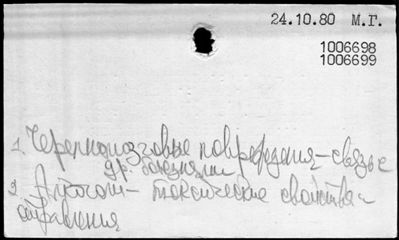 24.10.80 М.Г.
1006698
1006699
1. Черепномозговые повреждения - связь с
др. болезнями
2. Алкоголь - токсические свойства -
отравления